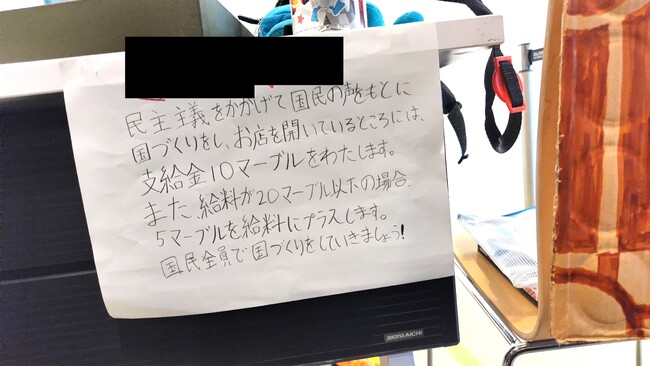 民主主義をかかげて国民の声をもとに
国づくりをし、お店を開いているところには、
支給金10マーブルをわたします。
また、給料が20マーブル以下の場合、
5マーブルを給料にプラスします。
国民全員で国づくりをしていきましょう!
AICHI